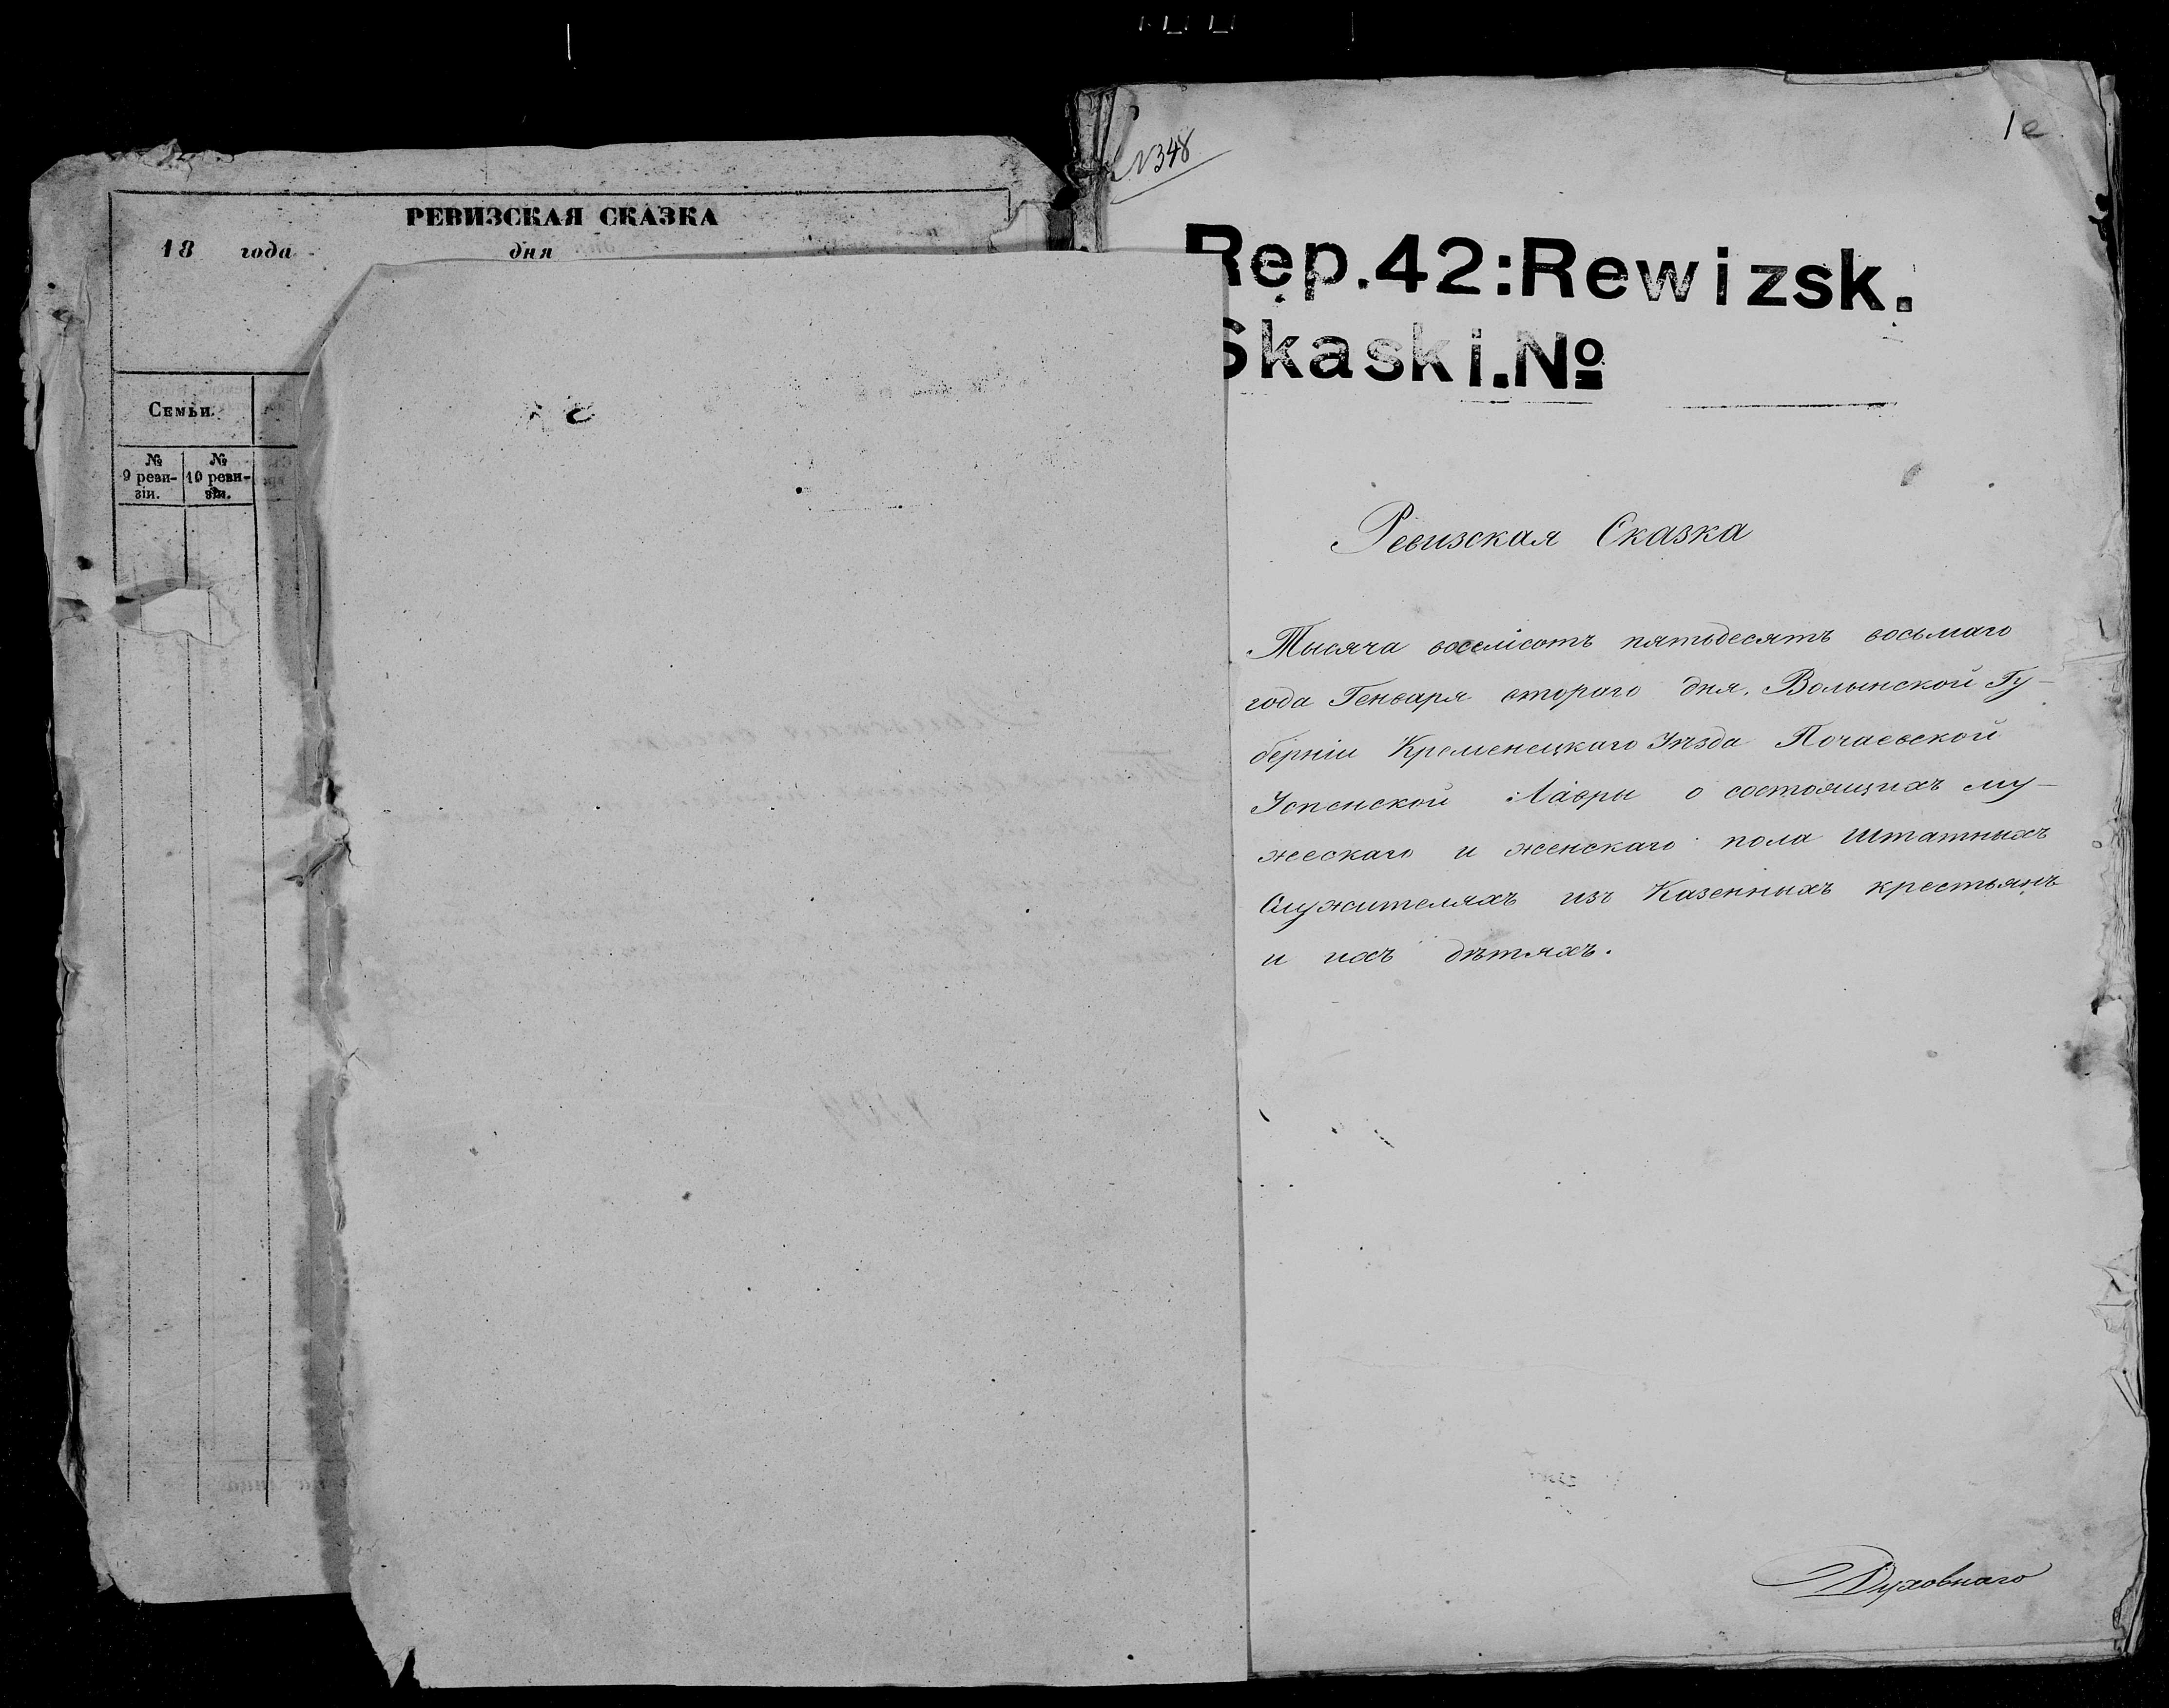 РЕВИЗСКАЯ СКАЗКА
18 года дня
Семьи.
№ 9 реви-зіи. № 10 реви-зіи.
N348
1
Rep.42:Rewizsk.
Skaski.№
Ревизская Сказка
Тысяча восемсотъ пятьдесятъ восьмаго
года Генваря втораго дня, Волынской Гу-
берніи Кременецкаго Уѣзда Почаевской
Успенской Лавры о состоящихъ му-
жескаго и женскаго пола Штатныхъ
Служителяхъ изъ Казенныхъ крестьянъ
и ихъ дѣтяхъ.
Духовнаго